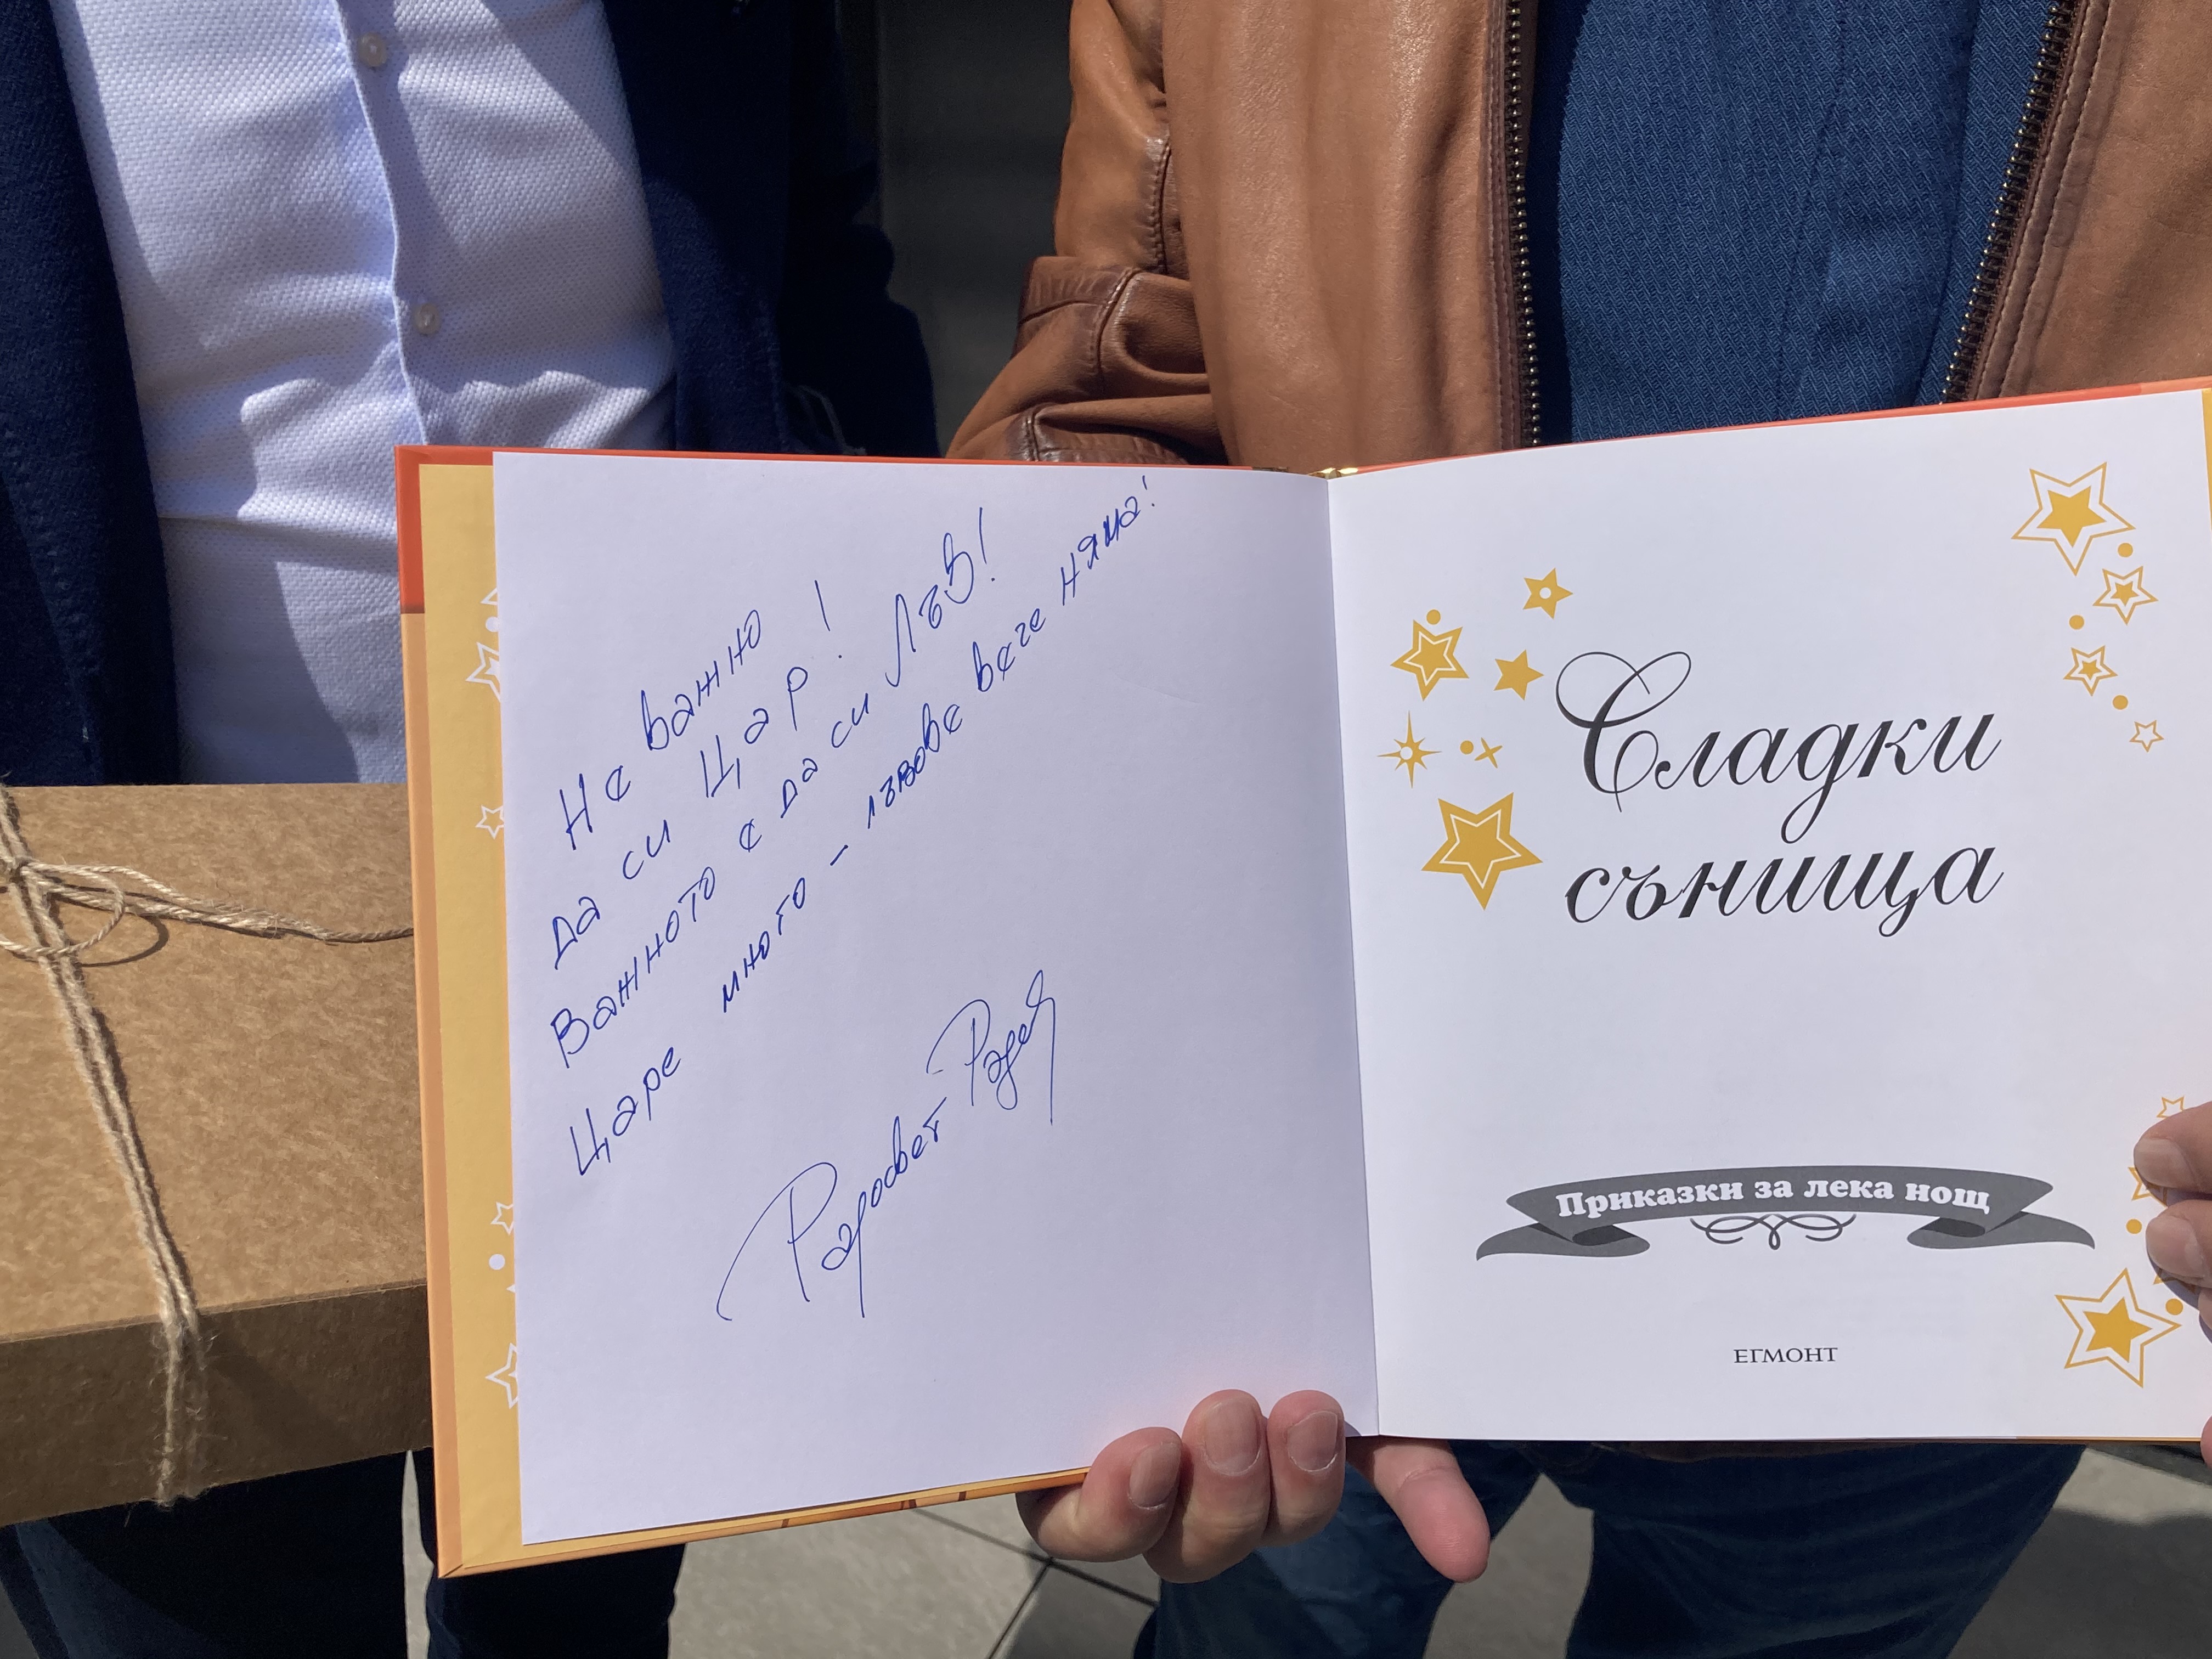 Не важно
да си Цар!
Важното е да си Лъв!
Царе много - лъвове вече няма!
Радосвет Радев
Сладки
сънища
Приказки за лека нощ
ЕГМОНТ